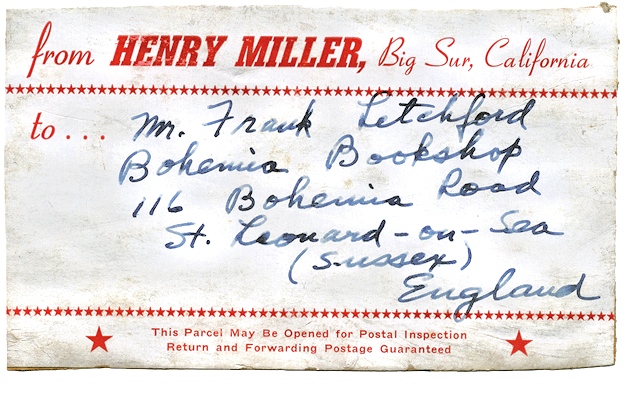 from HENRY MILLER, Big Sur, California
to... Mr. Frank Letchford
Bohemia Bookshop
116 Bohemia Road
St. Leonard-on-Sea
(Sussex)
England
This Parcel May Be Opened for Postal Inspection
Return and Forwarding Postage Guaranteed